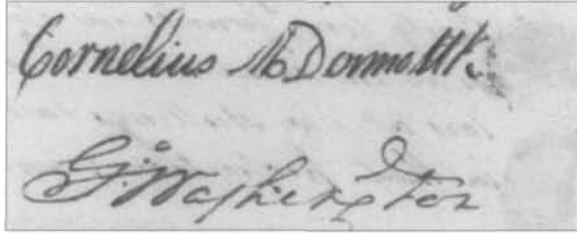 Cornelius McDermott.
G:Washington